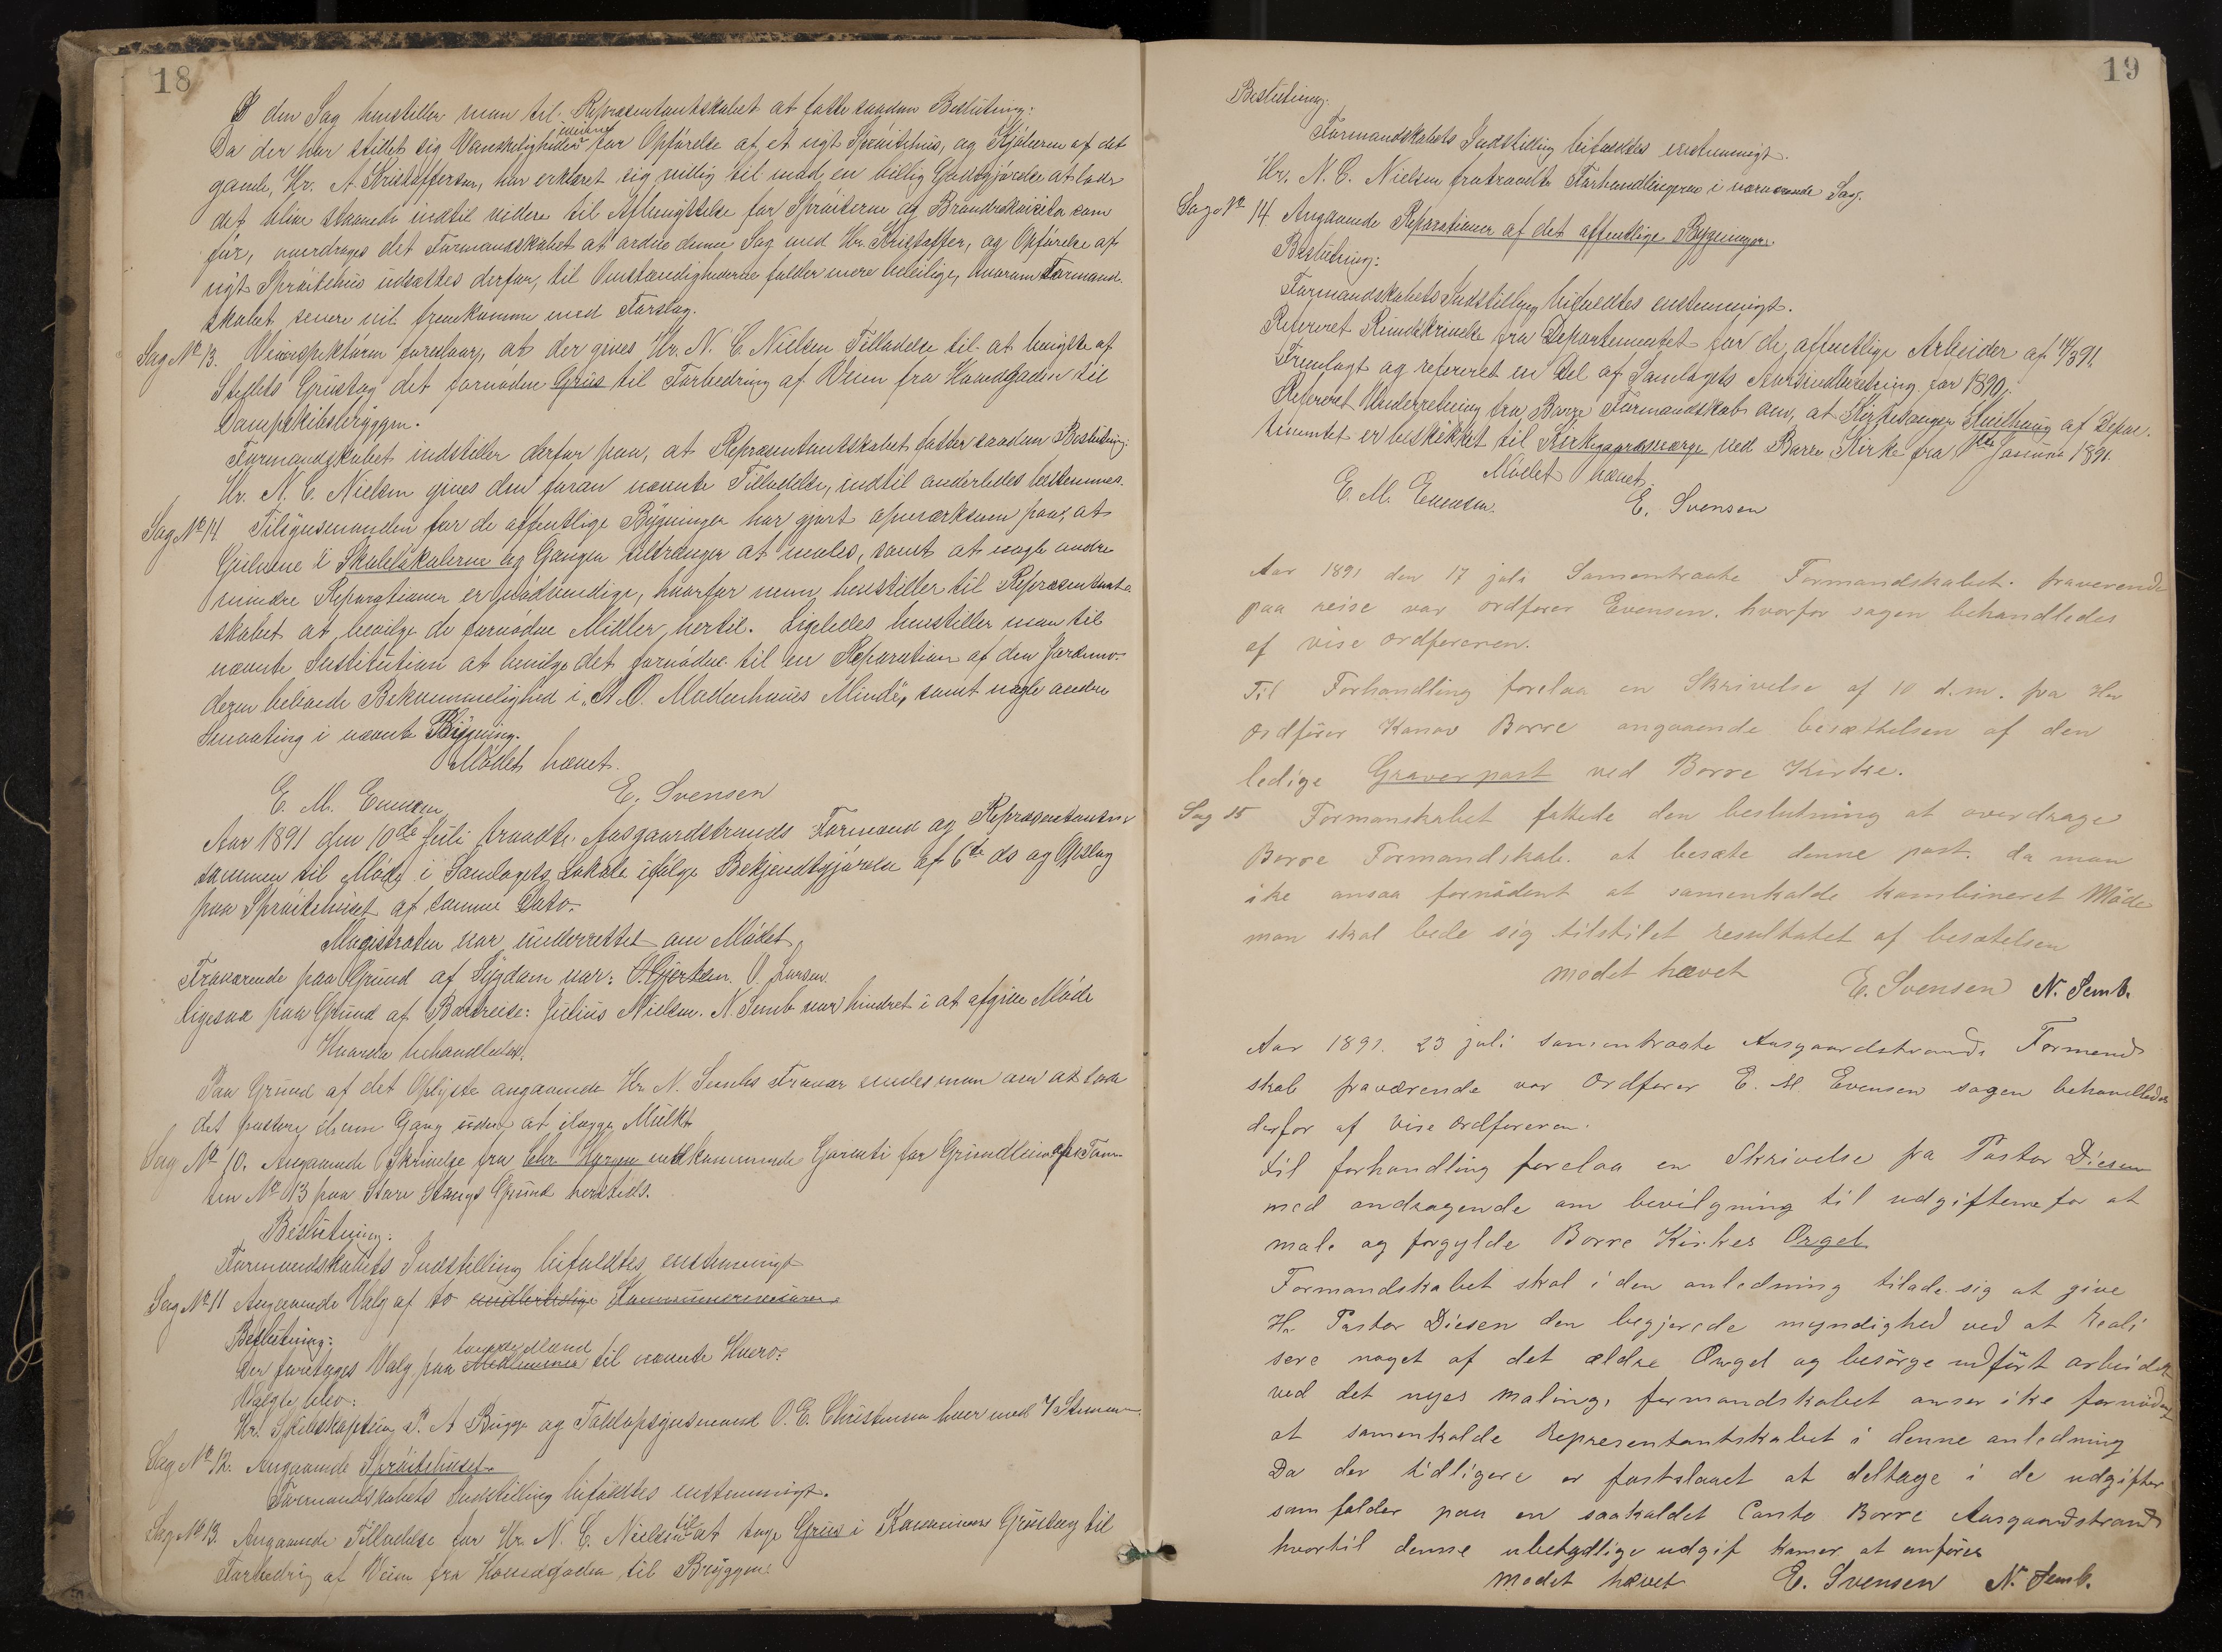 18
I den Sag henstiller man til Repræsentantskabet at fatte saadan Beslutning:
Da der har stillet sig Vanskeligheder imidler for Opførelse af et nyt Sprøitehus, og Kjøberen af det
gamle, Hr. A. Kristoffersen, har erklæret sig villig til mod en billig Godtgjørelse at lade
det blive staaende indtil videre til Afbenyttelse for Sprøiterne og Brandrekvisita som
før, overdrages det Formandskabet at ordne denne Sag med Hr. Kristoffer, og Opførelse af
nyt Sprøitehus udsættes derfor, til Omstændighederne falder mere beleilige, hvorom Formand-
skabet senere vil fremkomme med Forslag.
Sag No 13. Veiinspektøren foreslaar, at der gives Hr. N. C. Nielsen Tilladelse til at benytte af
Stedets Grustag det fornødne Grus til Forbedring af Veien fra Havnegaden til
Dampskibsbryggen.
Formandskabet indstiller derfor paa, at Repræsentantskabet fatter saadan Beslutning:
Hr. N. C. Nielsen gives den foran nævnte Tilladelse, indtil anderledes bestemmes.
Sag No 14 Tilsynsmanden for de offentlige Bygninger har gjort opmærksom paa, at
Gulvene i Skolelokalerne og Gangen tiltrænger at males, samt at nogle andre
mindre Reparationer er nødvendige, hvorfor man henstiller til Repræsentant-
skabet at bevilge de fornødne Midler hertil. Ligeledes henstiller man til
nævnte Institution at bevilge det fornødne til en Reparation af den Jordmo-
deren beboede Bekvemmelighed i "A. O. Madenhaus Minde", samt nogle andre
Smaating i nævnte Bygning.
Mødet hævet.
E. M. Evensen E. Svensen
Aar 1891 den 10de Juli traadte Aasgaardstrands Formænd og Repræsentanter
sammen til Møde i Samlagets Lokale ifølge Bekjendtgjørelse af 6te ds og Opslag
paa Sprøitehuset af samme Dato.
Magistraten var underrettet om Mødet
Fraværende paa Grund af Sygdom var: O. Gjertsen. O. Larsen
ligesaa paa Grund af Bortreise: Julius Nielsen. N. Semb var hindret i at afgive Møde
Hvorda behandledes.
Paa Grund af det Oplyste angaaende Hr N. Sembs Fravær enedes man om at lade
det passere denne Gang uden at ilægge Mulkt
Sag No 10. Angaaende Skrivelse fra Chr. Hyrgen vedkommende Garanti for Grundleien af Tom-
ten No 13 paa Store Stangs Grund herstids.
Beslutning:
Formandskabets Indstilling bifaldtes enstemmigt
Sag No 11 Angaaende Valg af to midlertidige Kommunerevisorer.
Beslutning:
Der foretages Valg paa Medlemmer til nævnte Hverv:
Valgte blev:
Hr. Skibskaptein P. A Bugge og Toldopsynsmand O. E. Christensen hver med 7 Stemmer.
Sag No 12. Angaaende Sprøitehuset.
Formandskabets Indstilling bifaldtes enstemmigt.
Sag No 13. Angaaende Tilladelse for Hr. N. C. Nielsen til at tage Grus i Kommunens Grustag til
Forbedring af Veien fra Havnegaden til Bryggen.
19
Beslutning:
Formandskabets Indstilling bifaldtes enstemmigt.
Hr. N. C. Nielsen fratraadte Forhandlingerne i nærværende Sag.
Sag No 14. Angaaende Reparationer af det offentlige Bygninger.
Beslutning:
Formandskabets Indstilling bifaldtes enstemmigt.
Refereret Rundskrivelse fra Departementet for de offentlige Arbeider af 14/3 91.
Fremlagt og refereret en Del af Samlagets Aarsindberetning for 1890.
Refereret Underretning fra Borre Formandskab om, at Kirkesanger Knudhaug af Depar-
tementet er beskikket til Kirkegaardsværge ved Borre Kirke fra 1ste Januar 1891.
Mødet hævet.
E. M. Evensen. E. Svensen
Aar 1891 den 17 juli Samentraate Formandskabet. fraverende
paa reise var ordfører Evensen. hvorfor sagen behandledes
af vise ordføreren.
Til Forhandling forelaa en Skrivelse af 10 d.m. fra Her
ordfører Kanav Borre angaaende besættelsen af den
ledige Graver post ved Borre Kirke.
Sag 15 Formanskabet fattede den beslutning at overdrage
Borre Formandskab. at besæte denne post. da man
ike ansaa fornødent at samenkalde kombineret Møde
man skal bede sig tilstilet resultatet af besætelsen
mødet hævet E. Svensen N. Semb.
Aar 1891. 23 juli samentraate Aasgaardstrands Formend
skab fraværende var Ordfører E. M Evensen sagen behandledes
derfor af vise ordføreren.
til forhandling forelaa en Skrivelse fra Pastor Diesen
med andragende om bevilgning til udgifterne for at
male og forgylde Borre Kirkes Orgel
Formandskabet skal i den anledning tilade sig at give
Hr Pastor Diesen den begjærede myndighed ved at reali
sere noget af det ældre Orgel og besørge udført arbeidet
ved det nyes maling, formandskabet anser ike fornødent
at samenkalde Representantskabet i denne anledning
Da der tidligere er fastslaaet at deltage i de udgifter
som falder paa en saakaldet Conto Borre Aasgaardstrand
hvortil denne ubetydlige udgift komer at anføres
mødet hævet E. Svensen N. Semb.